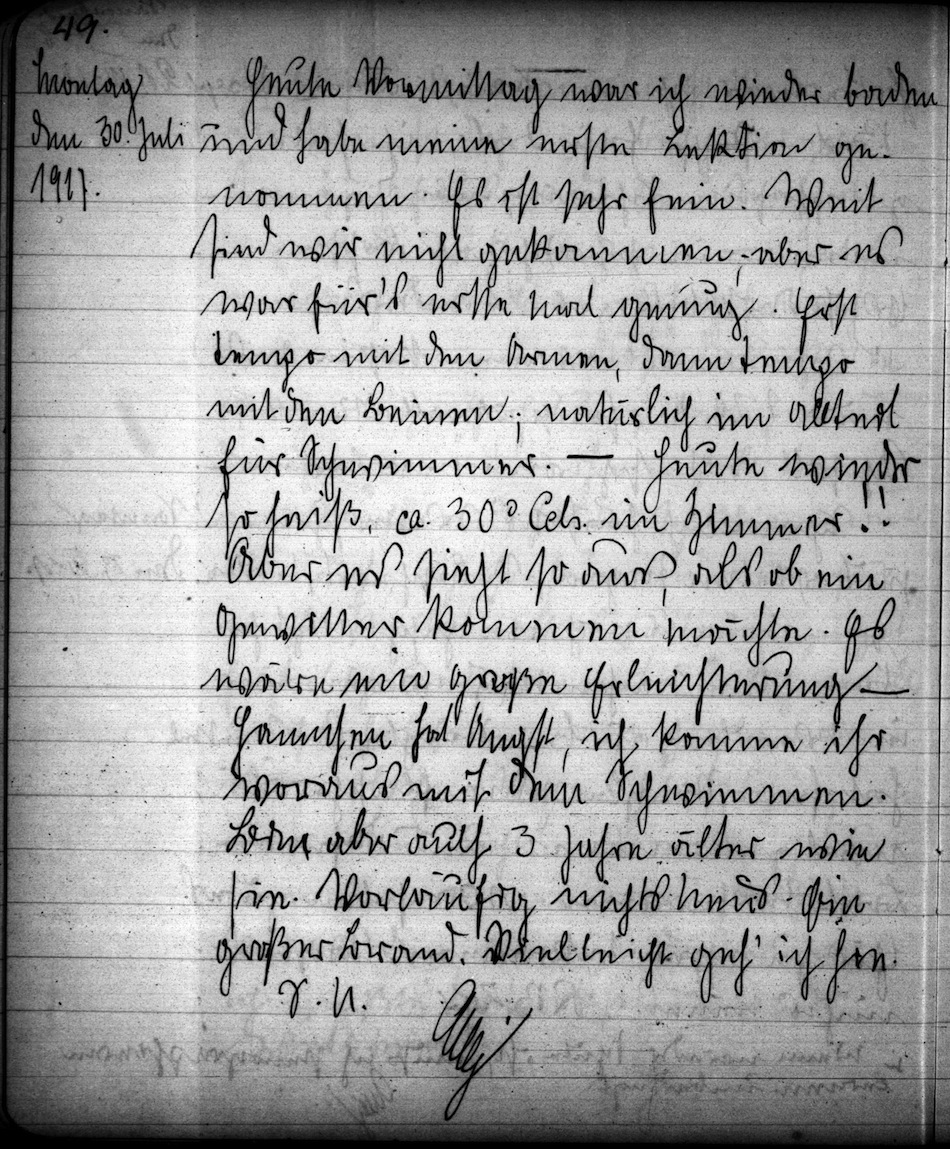 49.
Montag
den 30. Juli
1917.
Heute Vormittag war ich wieder baden
und habe meine erste Lektion ge-
nommen. Es ist sehr fein. Weit
sind wir nicht gekommen, aber es
war für's erste Mal genug. Erst
Tempo mit den Armen, dann Tempo
mit den Beinen; natürlich im Abteil
für Schwimmer. — Heute wieder
so heiß, ca. 30° Cels. im Zimmer!!
Aber es sieht so aus, als ob ein
Gewitter kommen möchte. Es
wäre ein große Erleichterung —
Hannchen hat Angst, ich komme ihr
voraus mit dem Schwimmen.
Bin aber auch 3 Jahre älter wie
sie. Vorläufig nichts Neues. Ein
großer Brand. Vielleicht geh' ich hin.